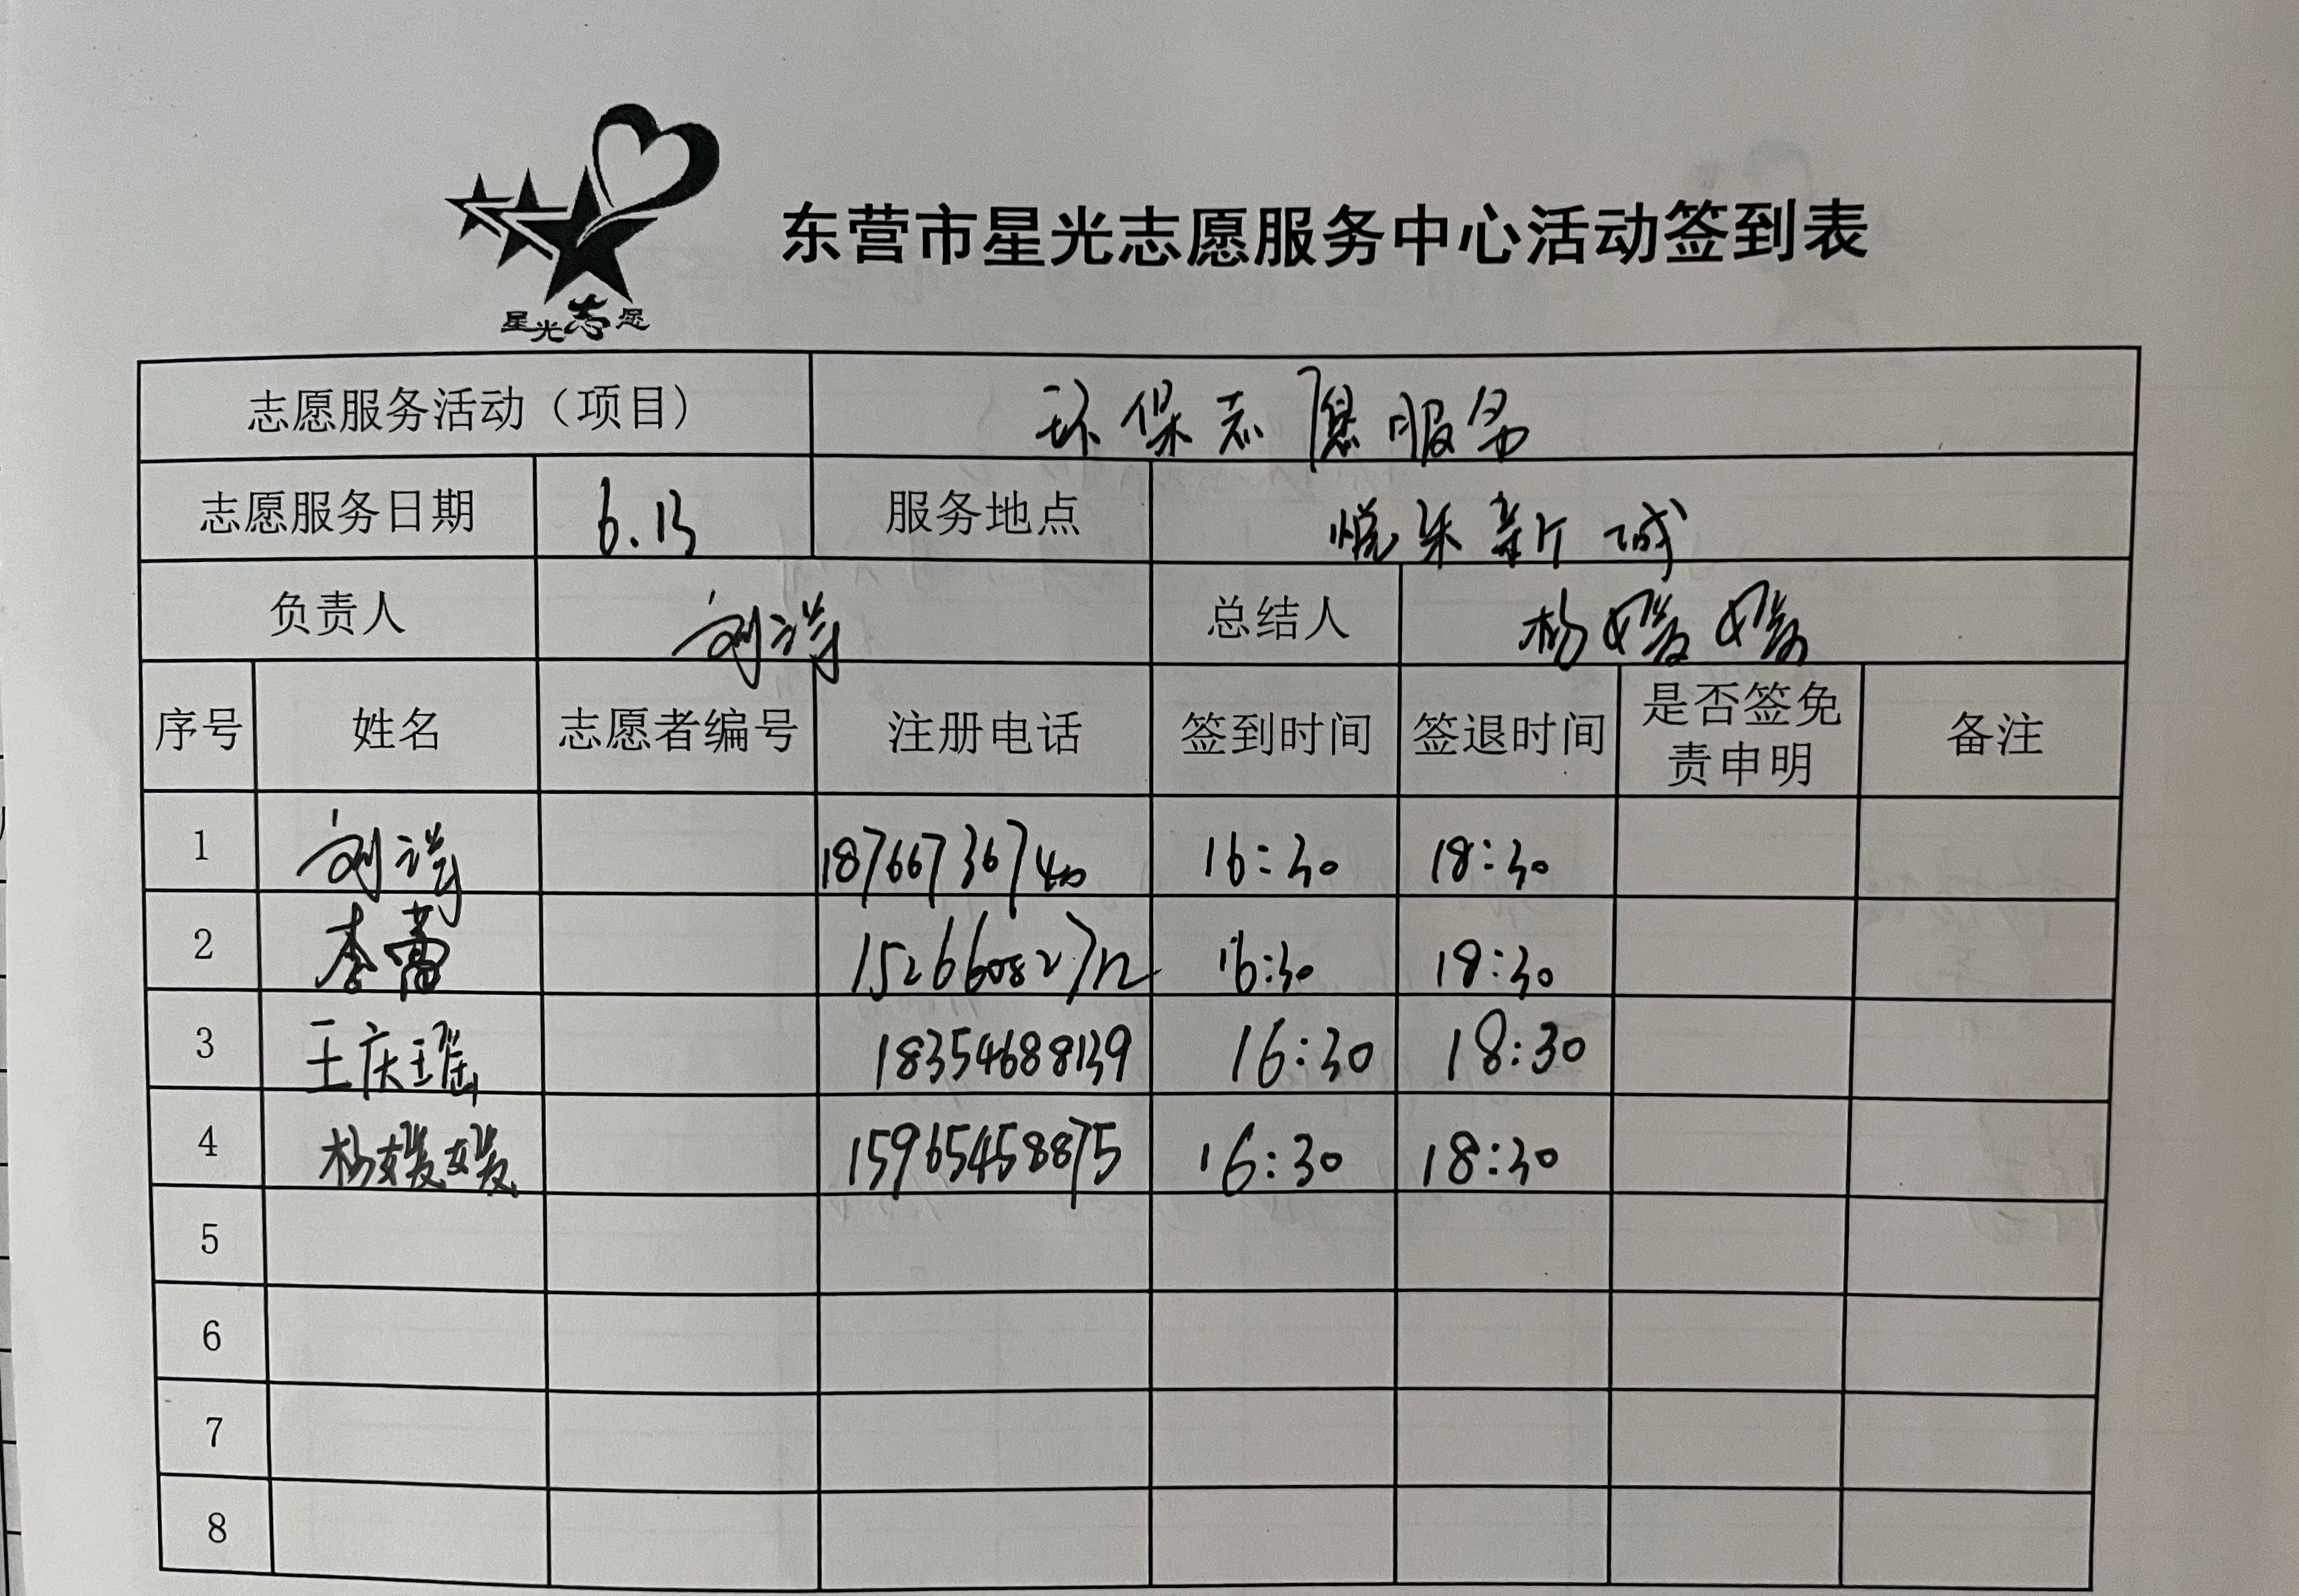 东营市星光志愿服务中心活动签到表
星光志愿
志愿服务活动（项目） 环保志愿服务
志愿服务日期 6.13 服务地点 悦来新城
负责人 刘洋 总结人 杨媛媛
序号 姓名 志愿者编号 注册电话 签到时间 签退时间 是否签免责申明 备注
1 刘洋 18766736740 16:30 18:30
2 李蕾 15266082712 16:30 18:30
3 王庆瑶 18354688139 16:30 18:30
4 杨媛媛 15965458875 16:30 18:30
5
6
7
8